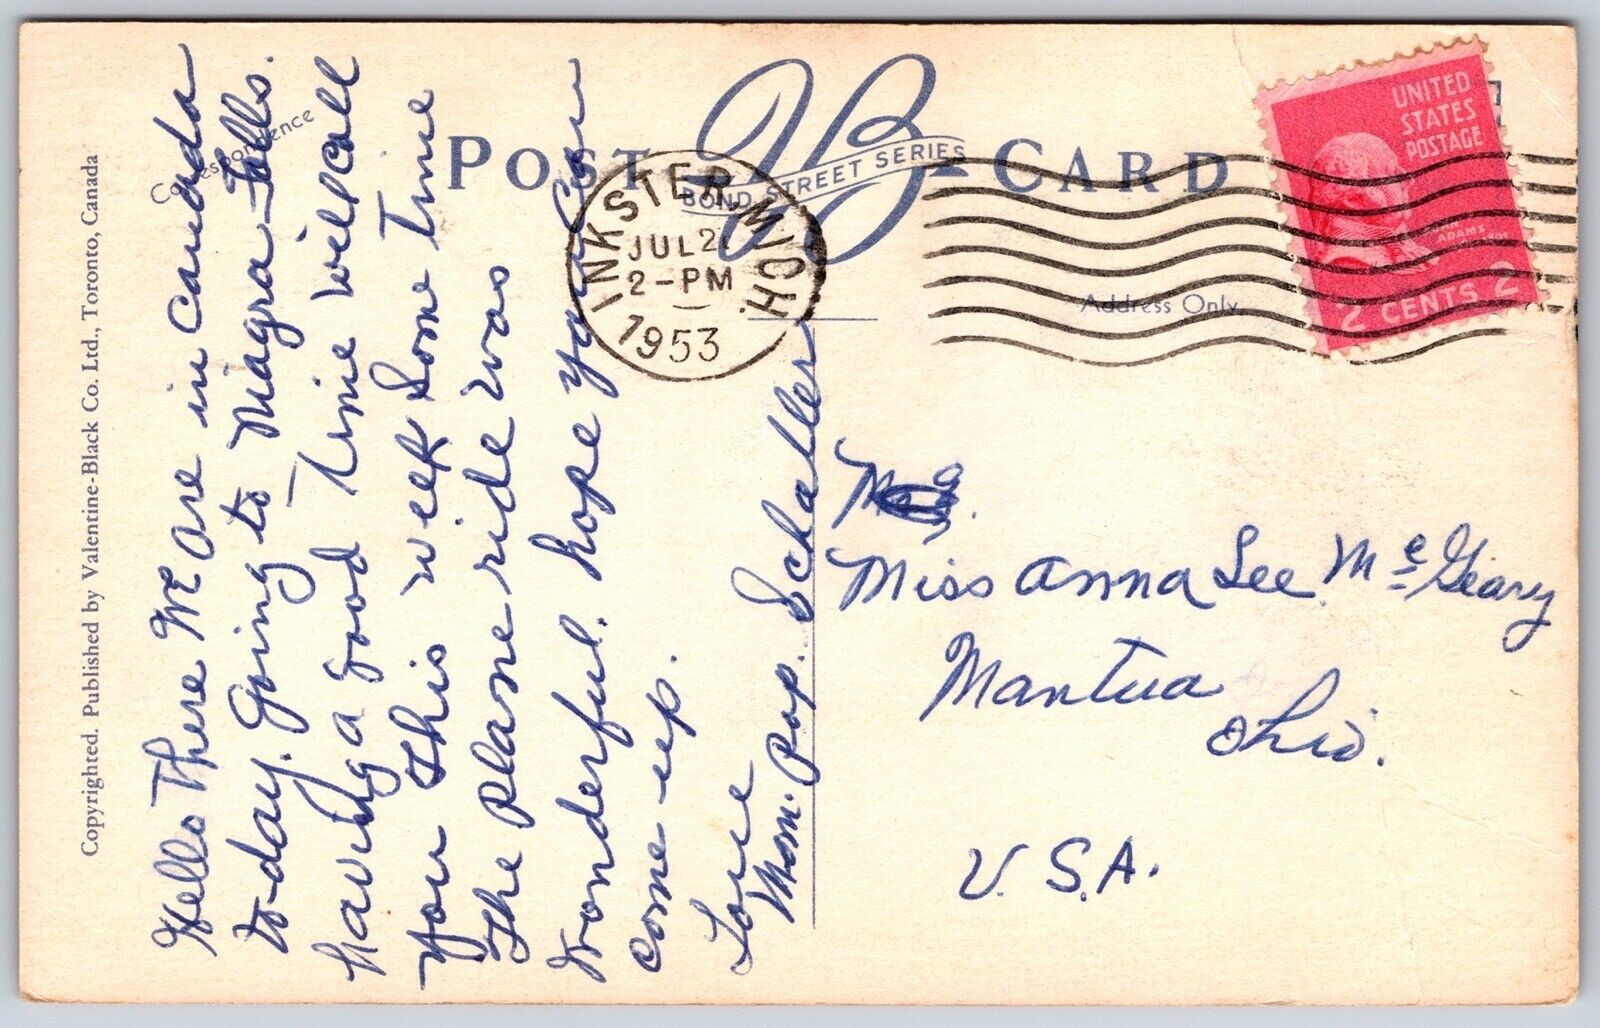 Copyrighted. Published by Valentine-Black Co. Ltd., Toronto, Canada
Correspondence
POST CARD
VB
BOND STREET SERIES
Address Only
INKSTER, MICH.
JUL 21
2-PM
1953
UNITED
STATES
POSTAGE
JOHN
ADAMS
2 CENTS 2
Hello There We are in Canada
to-day. Going to Niagra Falls.
having a good Time will call
you This week Some Time
The plane ride was
wonderful. hope you can
come up.
Love
Mom. Pop. Schaller
Miss Anna Lee McGeary
Mantua
Ohio.
U.S.A.